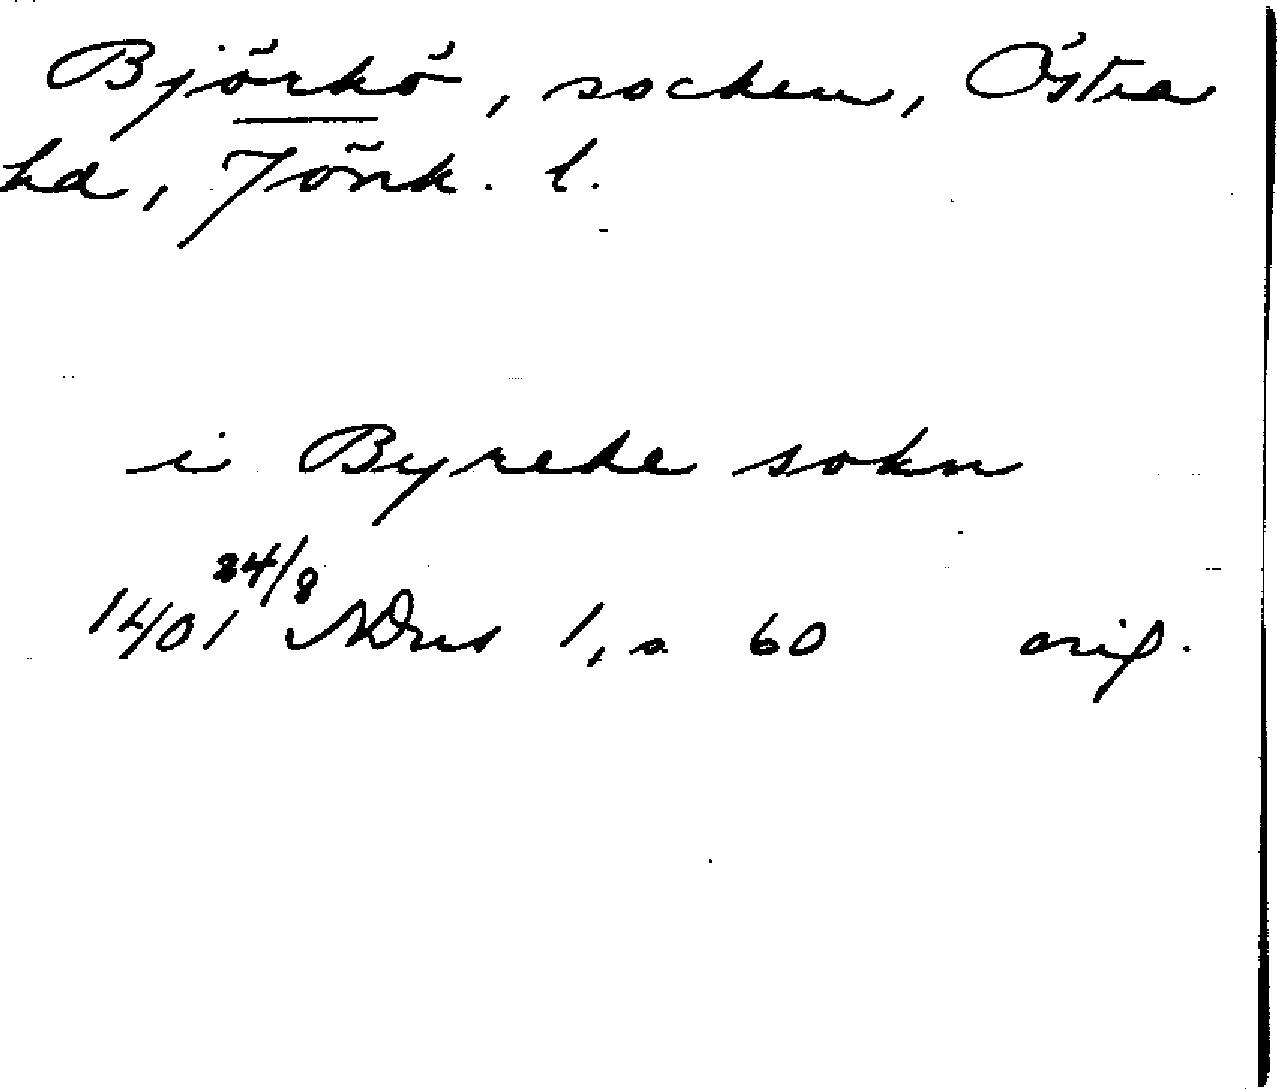 Björkö, socken, Östra
hd, Jönk. l.
i Byreke sokn
1401 24/8 NDns 1, s 60 orig.